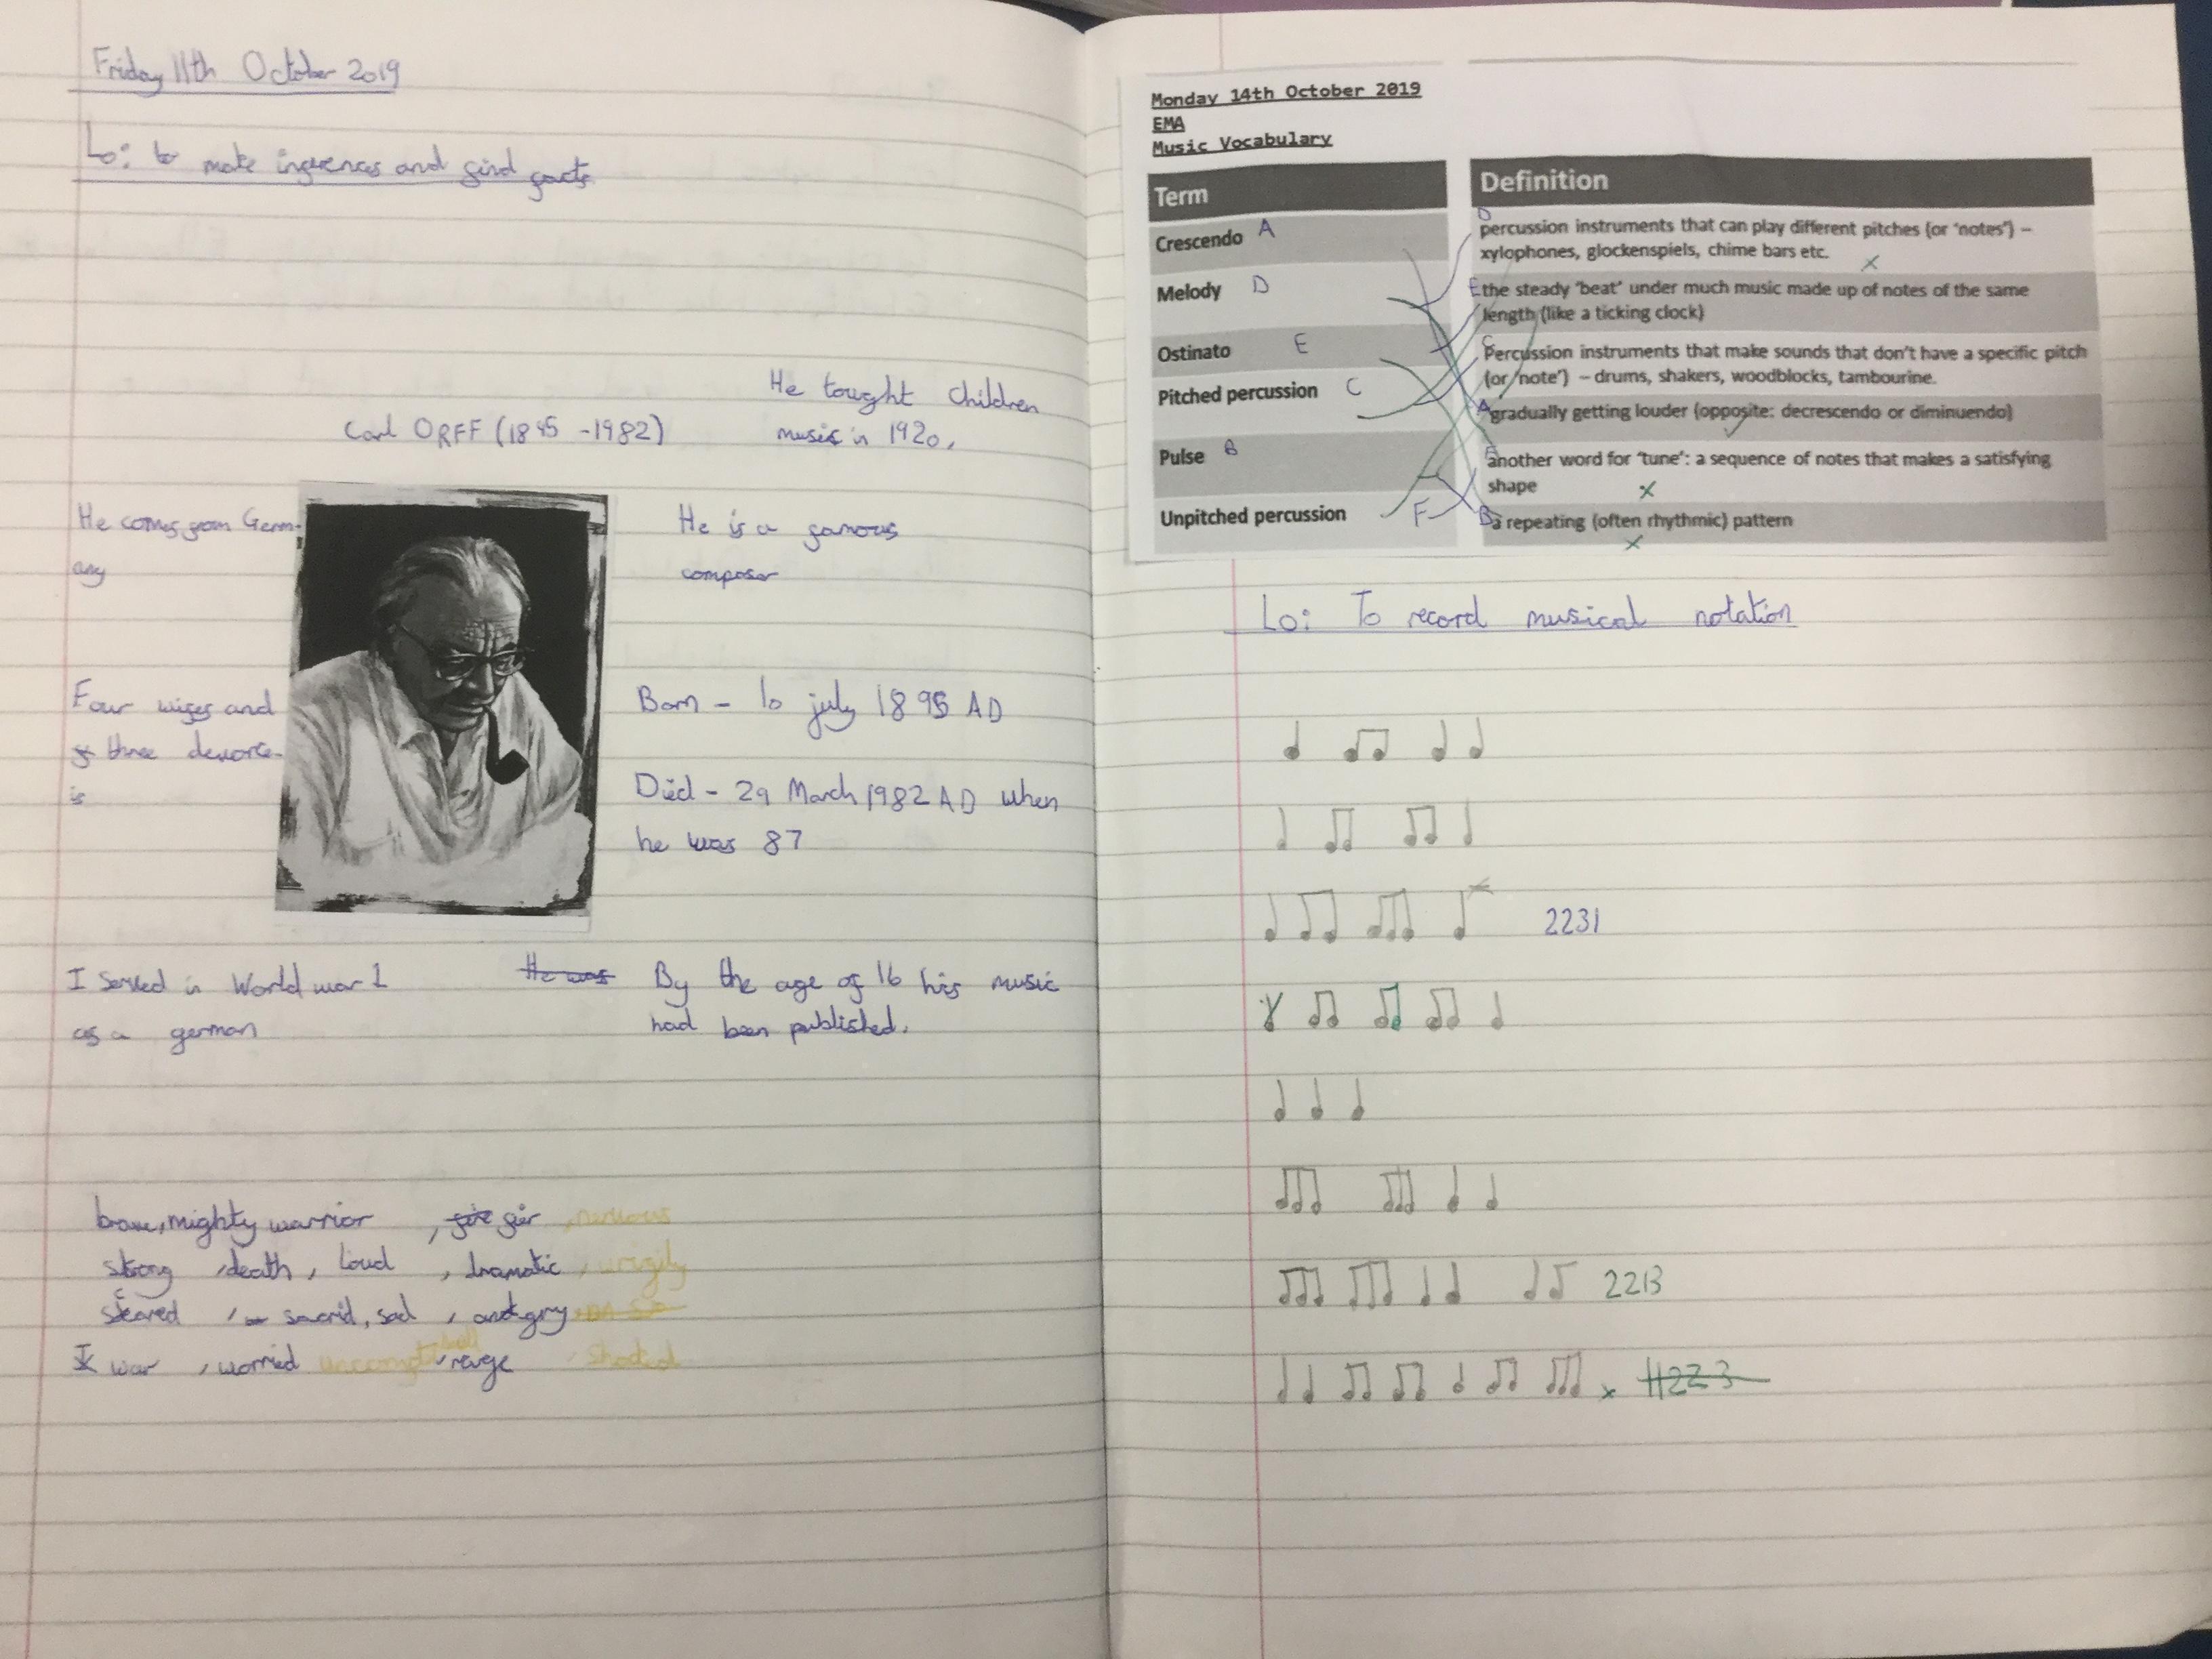 Friday 11th October 2019
Lo: to make inferences and find facts
He tought children
music in 1920.
Carl ORFF (1895 - 1982)
He comes from Germ-
any
He is a famous
composer
Four wifes and
three devorce-
is
Born - 10 july 1895 AD
Died - 29 March 1982 AD when
he was 87
I served in World war 1
as a german
He was By the age of 16 his music
had been published.
brave, mighty warrior,
strong, death, loud, dramatic
scared, sacrid, sad, angry
war, worried, revge
Monday 14th October 2019
EMA
Music Vocabulary
Term
Crescendo A
Melody D
Ostinato E
Pitched percussion C
Pulse B
Unpitched percussion F
Definition
D percussion instruments that can play different pitches (or 'notes') –
xylophones, glockenspiels, chime bars etc.
E the steady 'beat' under much music made up of notes of the same
length (like a ticking clock)
C Percussion instruments that make sounds that don't have a specific pitch
(or 'note') – drums, shakers, woodblocks, tambourine.
A gradually getting louder (opposite: decrescendo or diminuendo)
another word for 'tune': a sequence of notes that makes a satisfying
shape
B a repeating (often rhythmic) pattern
Lo: To record musical notation
2231
2213